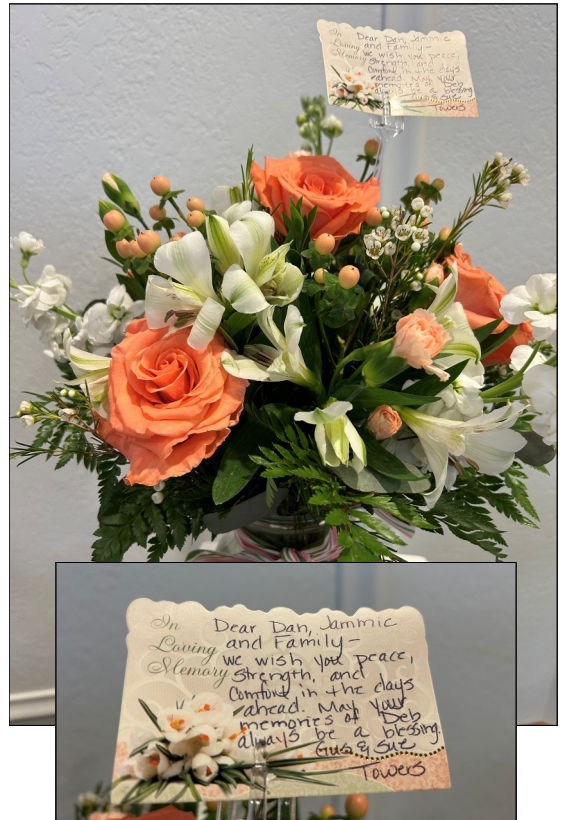 In
Loving
Memory
Dear Dan, Jammie
and Family-
we wish you peace,
Strength, and
Comfort in the days
ahead. May your
memories of Deb
always be a blessing.
Gus & Sue
Towers
In
Loving
Memory
Dear Dan, Jammie
and Family-
we wish you peace,
Strength, and
Comfort in the days
ahead. May your
memories of Deb
always be a blessing.
Gus & Sue
Towers